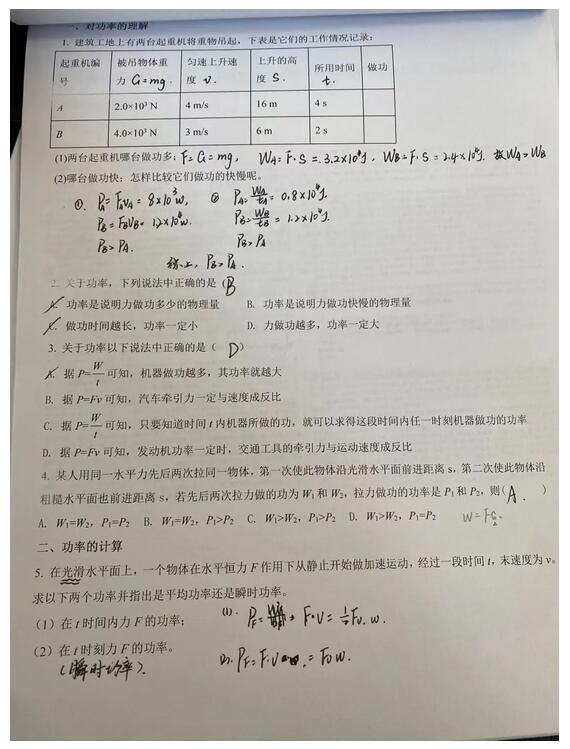 一、对功率的理解
1. 建筑工地上有两台起重机将重物吊起，下表是它们的工作情况记录：
起重机编号 被吊物体重力 G=mg. 匀速上升速度 v. 上升的高度 S. 所用时间 t. 做功
A 2.0×10³ N 4 m/s 16 m 4 s
B 4.0×10³ N 3 m/s 6 m 2 s
(1)两台起重机哪台做功多: F=G=mg, W_A=F·S=3.2×10⁴J, W_B=F·S=2.4×10⁴J. 故 W_A>W_B
(2)哪台做功快；怎样比较它们做功的快慢呢。
①. P_A=F_Av_A=8×10³w, ② P_A=W_A/t_A=0.8×10⁴J.
P_B=F_Bv_B=12×10⁴w. P_B=W_B/t_B=1.2×10⁴J.
P_B>P_A. P_B>P_A
综上, P_B>P_A.
2. 关于功率，下列说法中正确的是（B
A. 功率是说明力做功多少的物理量 B. 功率是说明力做功快慢的物理量
C. 做功时间越长，功率一定小 D. 力做功越多，功率一定大
3. 关于功率以下说法中正确的是（ D）
A. 据 P=W/t 可知，机器做功越多，其功率就越大
B. 据 P=Fv 可知，汽车牵引力一定与速度成反比
C. 据 P=W/t 可知，只要知道时间 t 内机器所做的功，就可以求得这段时间内任一时刻机器做功的功率
D. 据 P=Fv 可知，发动机功率一定时，交通工具的牵引力与运动速度成反比
4. 某人用同一水平力先后两次拉同一物体，第一次使此物体沿光滑水平面前进距离 s，第二次使此物体沿
粗糙水平面也前进距离 s，若先后两次拉力做的功为 W₁和 W₂，拉力做功的功率是 P₁和 P₂，则（A. ）
A. W₁=W₂，P₁=P₂ B. W₁=W₂，P₁>P₂ C. W₁>W₂，P₁>P₂ D. W₁>W₂，P₁=P₂ W=Fs.
二、功率的计算
5. 在光滑水平面上，一个物体在水平恒力 F 作用下从静止开始做加速运动，经过一段时间 t，末速度为 v。
求以下两个功率并指出是平均功率还是瞬时功率。
（1）在 t 时间内力 F 的功率；
(1). P_F= F·v=½Fv. w.
（2）在 t 时刻力 F 的功率。
(瞬时功率).
(2). P_F=F·v =Fvw.